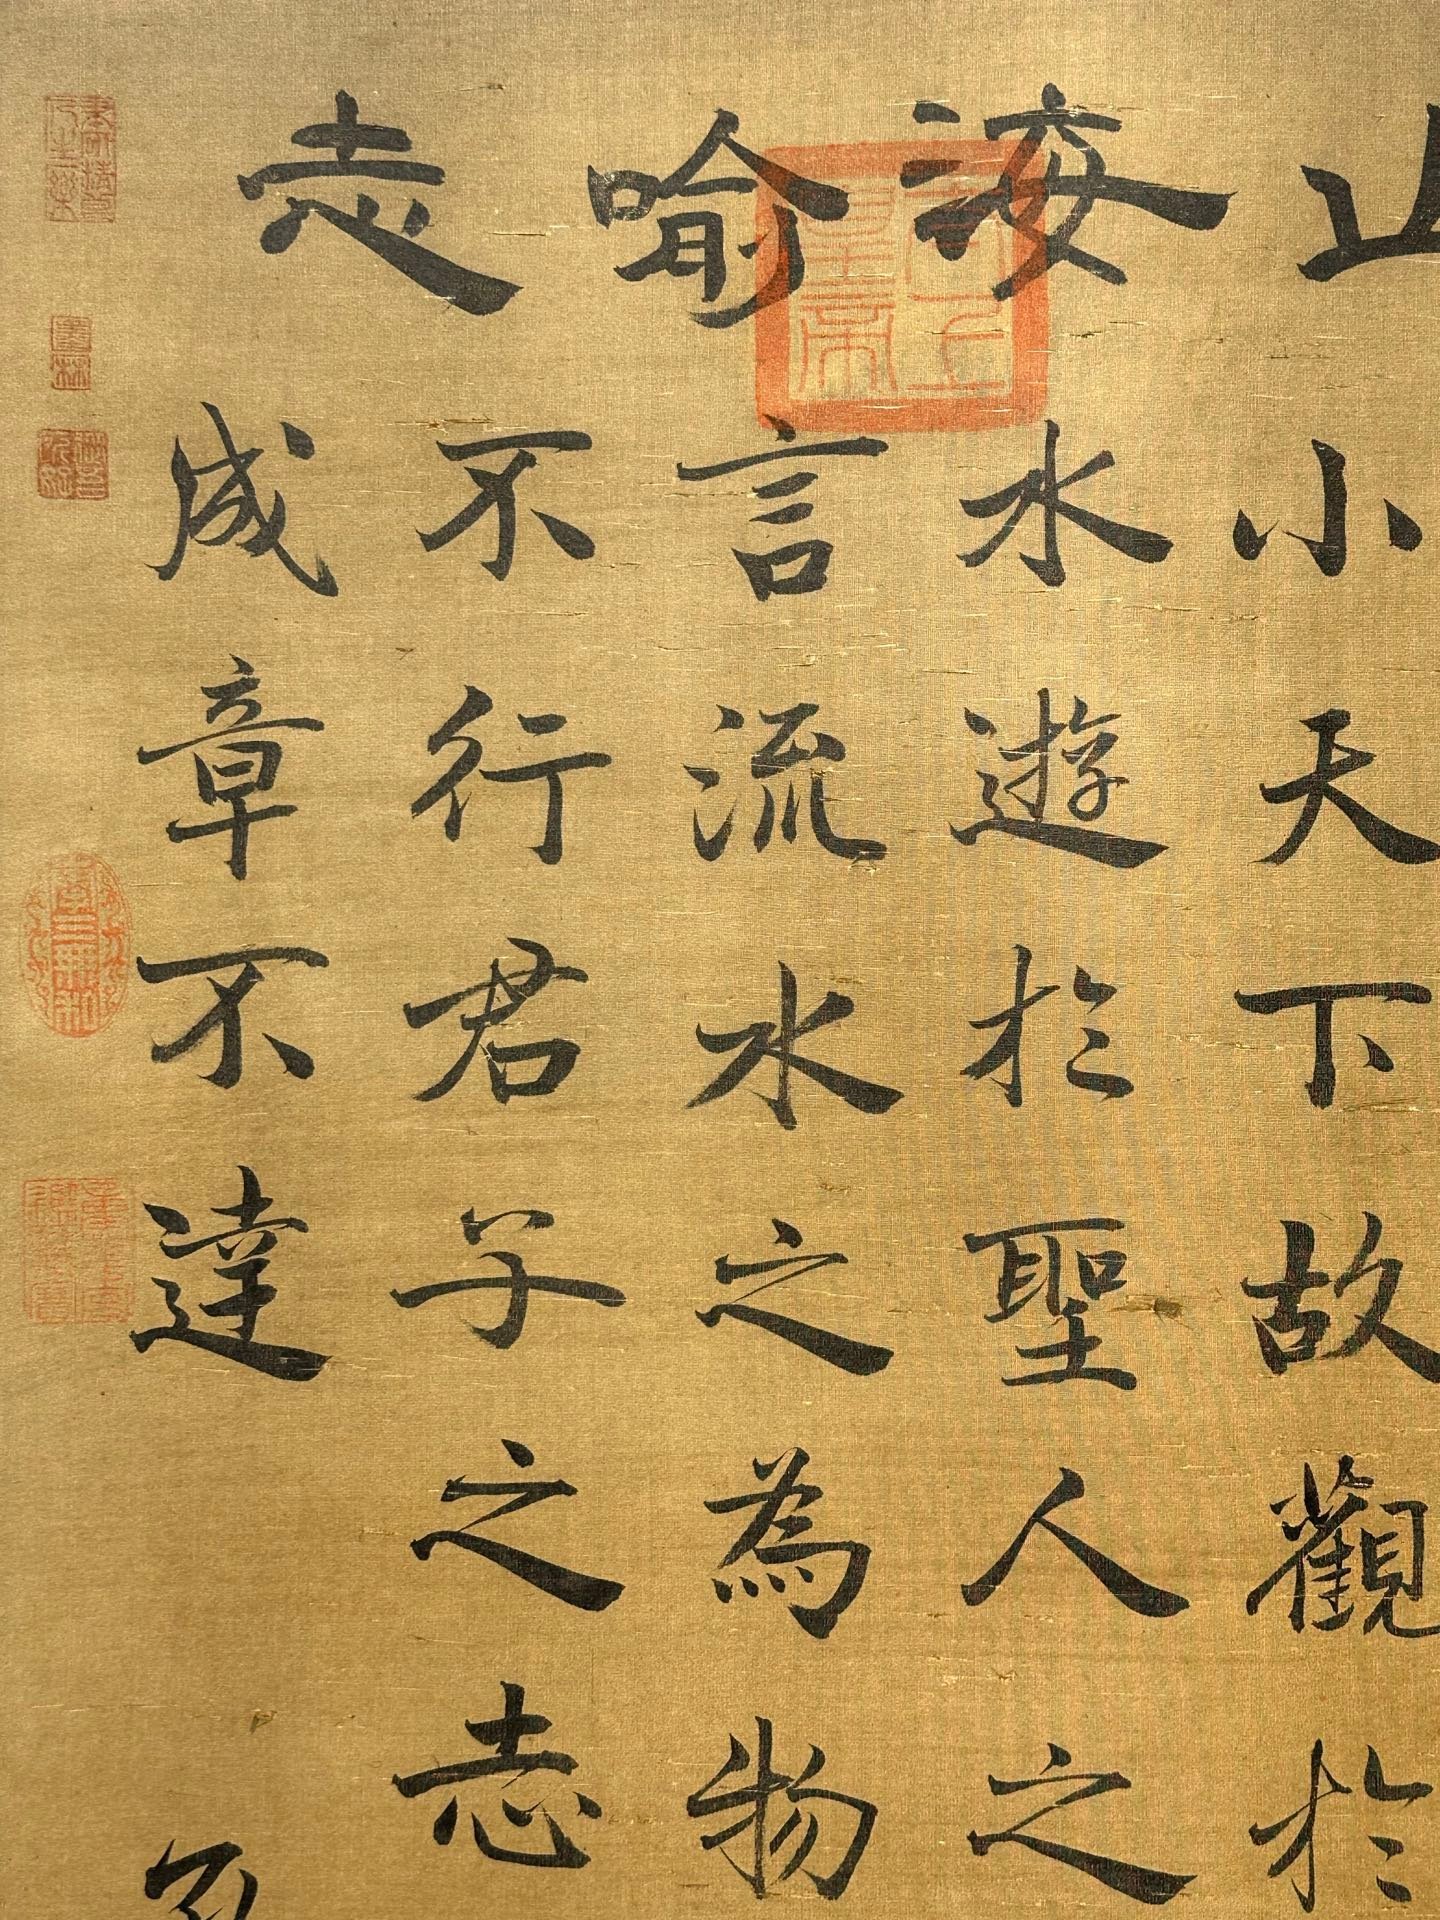 山海喻志
小天下故觀於
水遊於聖人之
言流水之為物
不行君子之志
成章不達
太上
皇帝